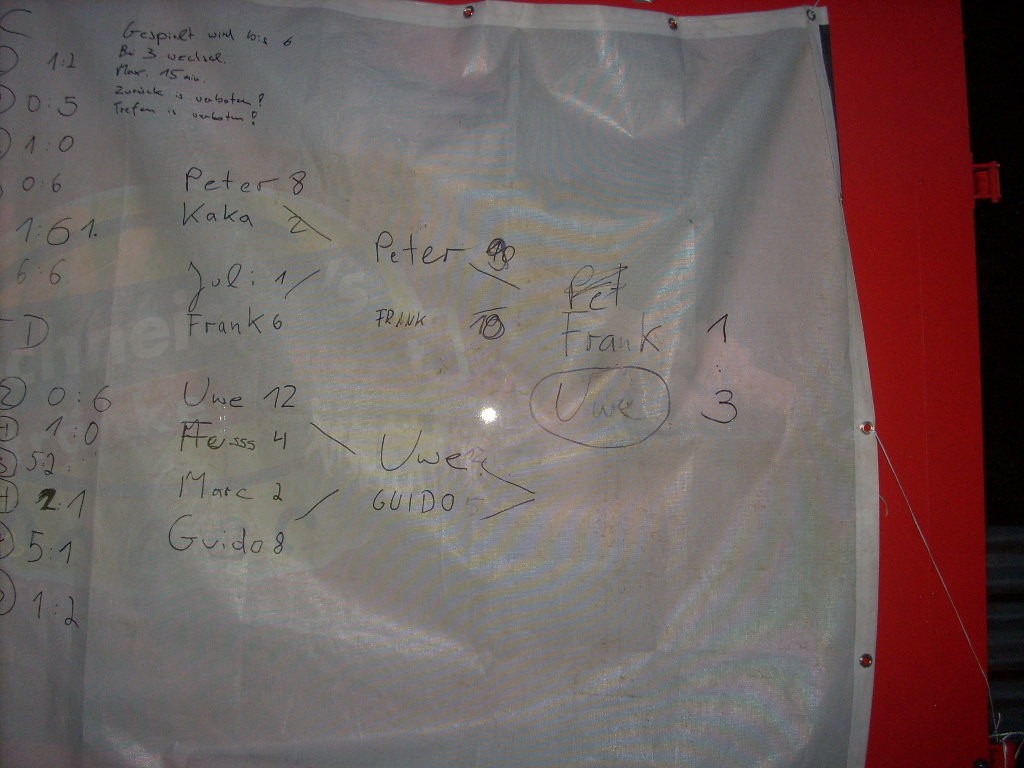 C
1:2
0:5
1:0
0:6
1:6 1.
6:6
D
2 0:6
1:0
5:2
2:1
5:1
1:2
Gespielt wird bis 6
Bei 3 wechsel.
Max. 15 min.
Zurück is verboten!
Treten is verboten!
Peter 8
Kaka 2
Juli 1
Frank 6
Uwe 12
4
Marc 2
Guido 8
Peter
FRANK 10
Uwe
GUIDO 5
Pet
Frank 1
Uwe 3